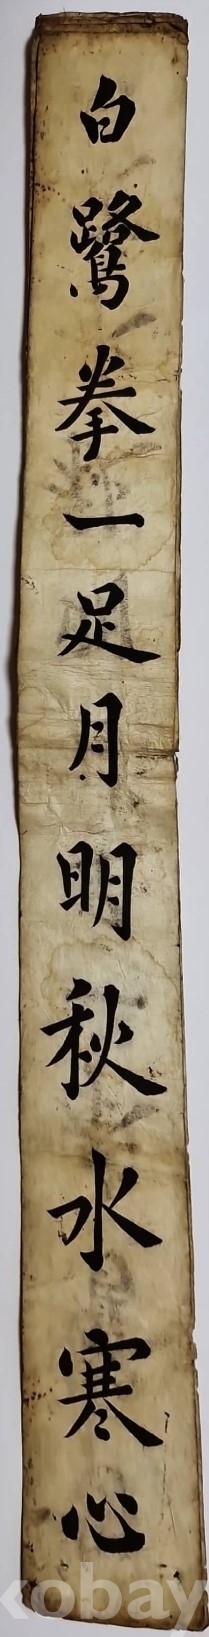 白鷺拳一足月明秋水寒心
kobay